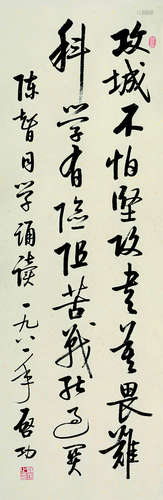 攻城不怕坚攻书莫畏难
科学有险阻苦战能过关
陈智同学诵读一九八二年启功